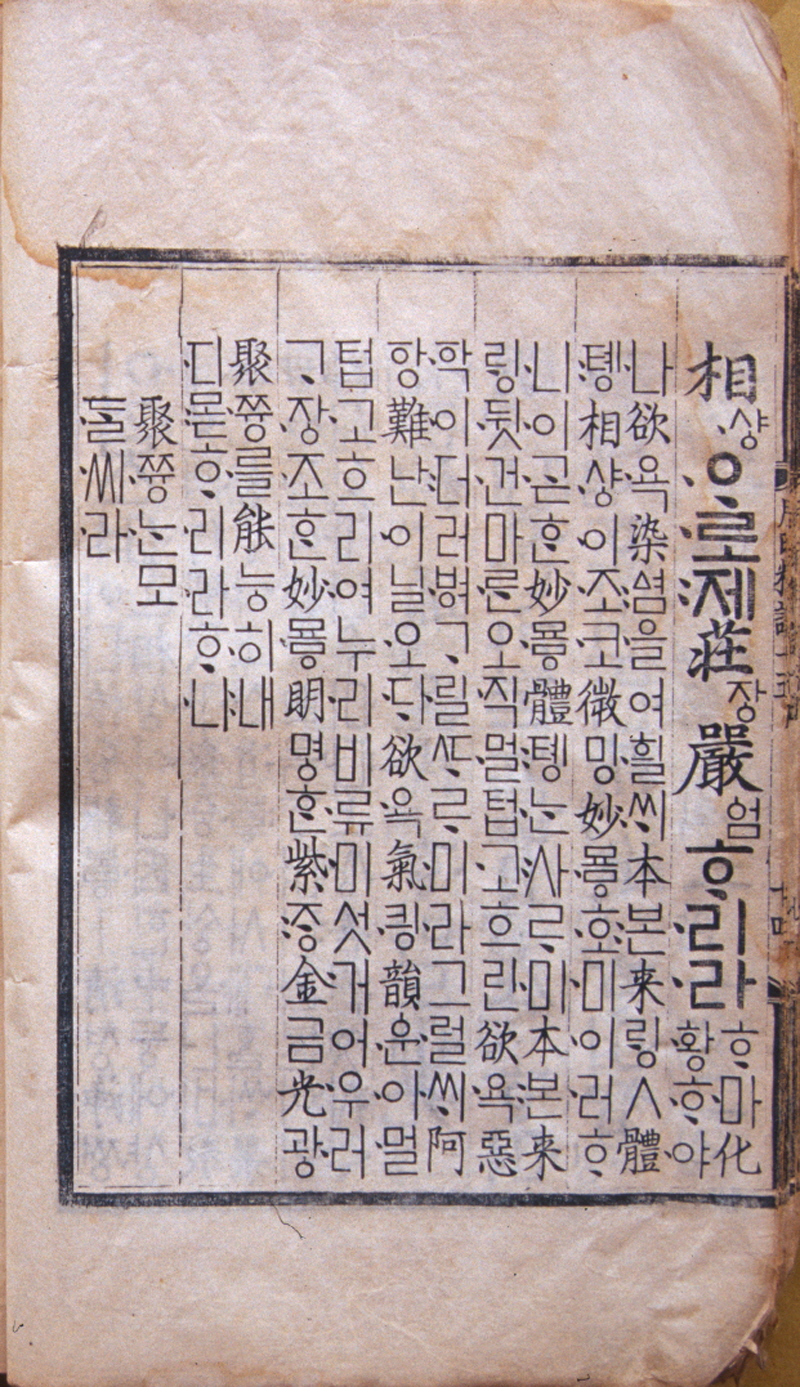 相샹ᄋᆞ로제莊장嚴엄ᄒᆞ리라
ᄒᆞ마化
황ᄒᆞ야
나欲욕染ᅀᅧᆷ을여흴ᄊᆡ本본来ᄅᆡᆼㅅ體
톙相샹이조코微밍妙묘ᇢᄒᆞ미이러ᄒᆞ
니이곧ᄒᆞᆫ妙묘ᇢ體톙ᄂᆞᆫ사ᄅᆞ마本본来
ᄅᆡᆼ뒷건마ᄅᆞᆫ오직멀텁고흐린欲욕惡
학이더러ᄫᅧᄀᆞ릴ᄯᆞᄅᆞ미라그럴ᄊᆡ阿
항難난이닐오ᄃᆡ欲욕氣킝韻운이멀
텁고흐리여누리비류미섯거어우러
ᄀᆞ장조ᄒᆞᆫ妙묘ᇢ朙명ᄒᆞᆫ紫ᄌᆞᆼ金금光광
聚쯍를能능히내
디몯ᄒᆞ리라ᄒᆞ니
聚쯍는모
ᄃᆞᆯ씨라